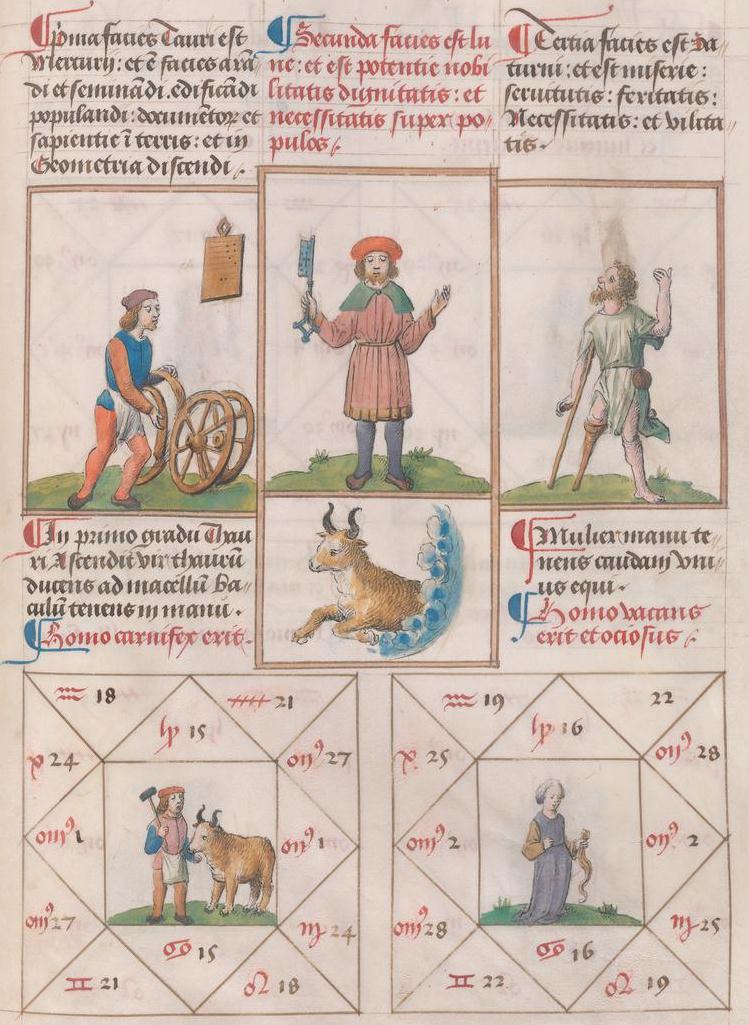 Prima facies Tauri est
Mercurij: et ē facies arā
di et seminādi. edificādi
populandi: documētor et
sapientie ī terris: et in
Geometria discendi.
Secunda facies est lu
ne: et est potentie nobi
litatis dignitatis: et
necessitatis super po
pulos.
Tertia facies est Sa
turni: et est miserie:
seruitutis: feritatis:
Necessitatis: et vilita
tis.
In primo gradu Thau
ri Ascendit vir thaurū
ducens ad macellū Ba
culū tenens in manu.
Homo carnifex erit.
Mulier manu te
nens caudam vni
us equi.
Homo vacans
erit et ociosus.
♒ 18
21
15
24
27
1
1
27
♍ 24
♋ 15
♊ 21
♌ 18
♒ 19
22
16
25
28
2
2
28
♍ 25
♋ 16
♊ 22
♌ 19